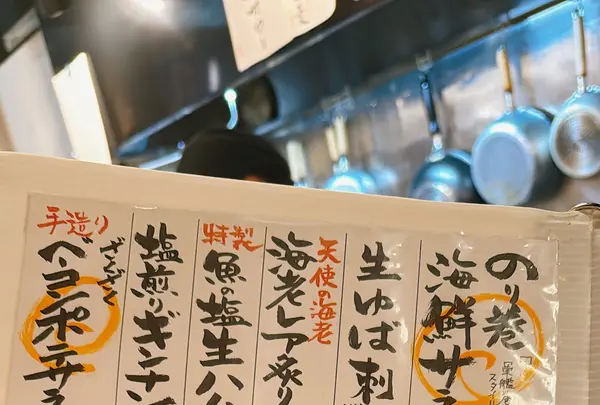 のり巻
海鮮サラ
生ゆば刺
天使の海老
海老レア炙り
特製
魚の塩生ハ
塩煎りギンナン
手造り
ざくざく
ベーコンポテサラ